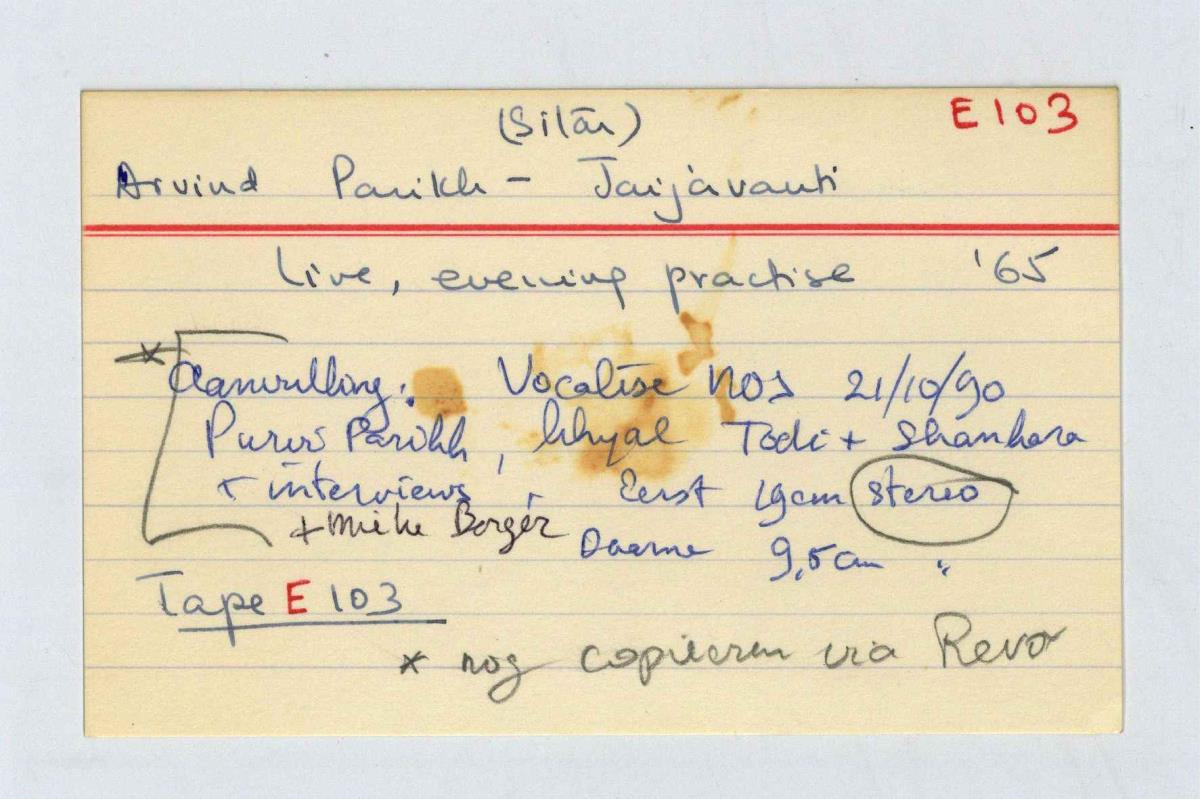 (Sitār) E103
Arvind Parikh - Jaijavanti
Live, evening practise '65
* Aanvulling: Vocalise NOS 21/10/90
Purvi Parikh, khyal Todi + Shankara
+ interviews, Eerst 19cm stereo
+ Mieke Berger
Daarna 9,5cm "
Tape E 103
* nog copiëren via Revox